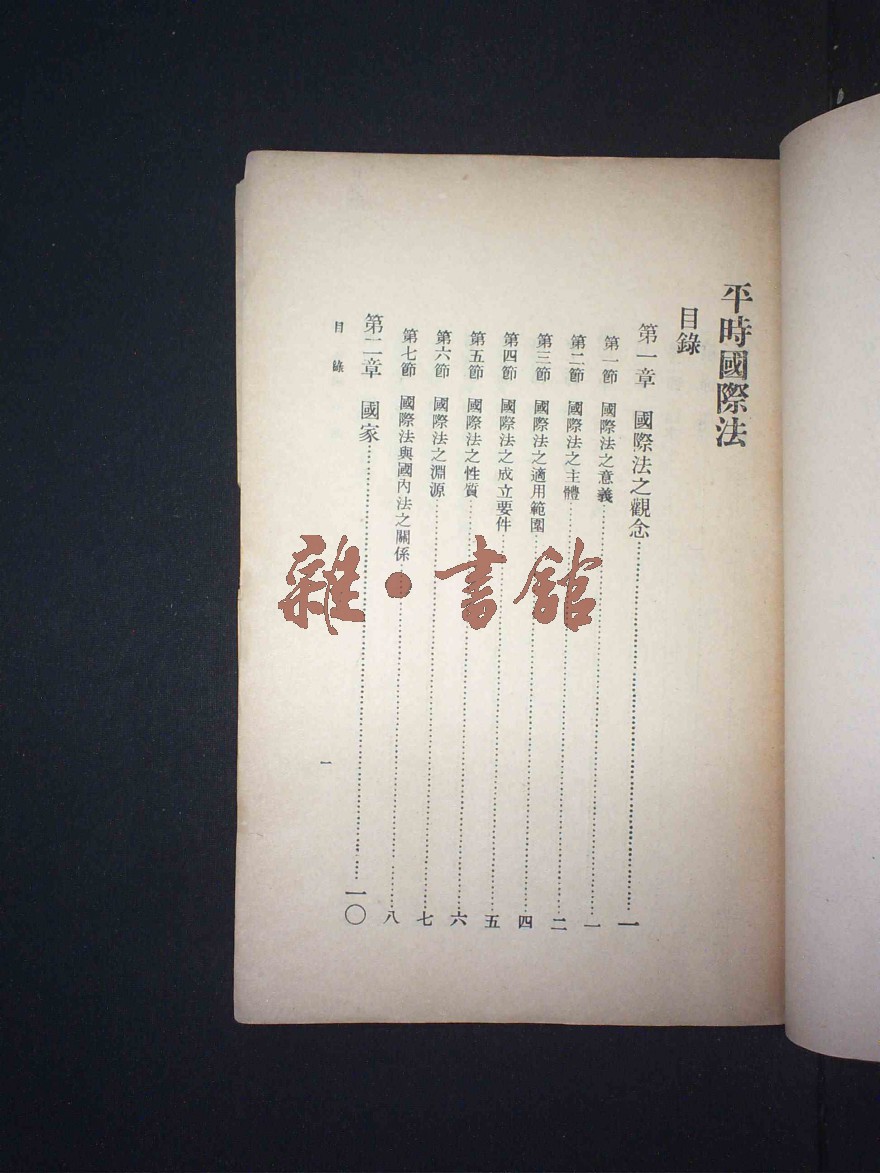 平時國際法
目錄
第一章 國際法之觀念……一
第一節 國際法之意義……一
第二節 國際法之主體……二
第三節 國際法之適用範圍……四
第四節 國際法之成立要件……五
第五節 國際法之性質……六
第六節 國際法之淵源……七
第七節 國際法與國內法之關係……八
第二章 國家……一〇
目錄
一
雜·書館